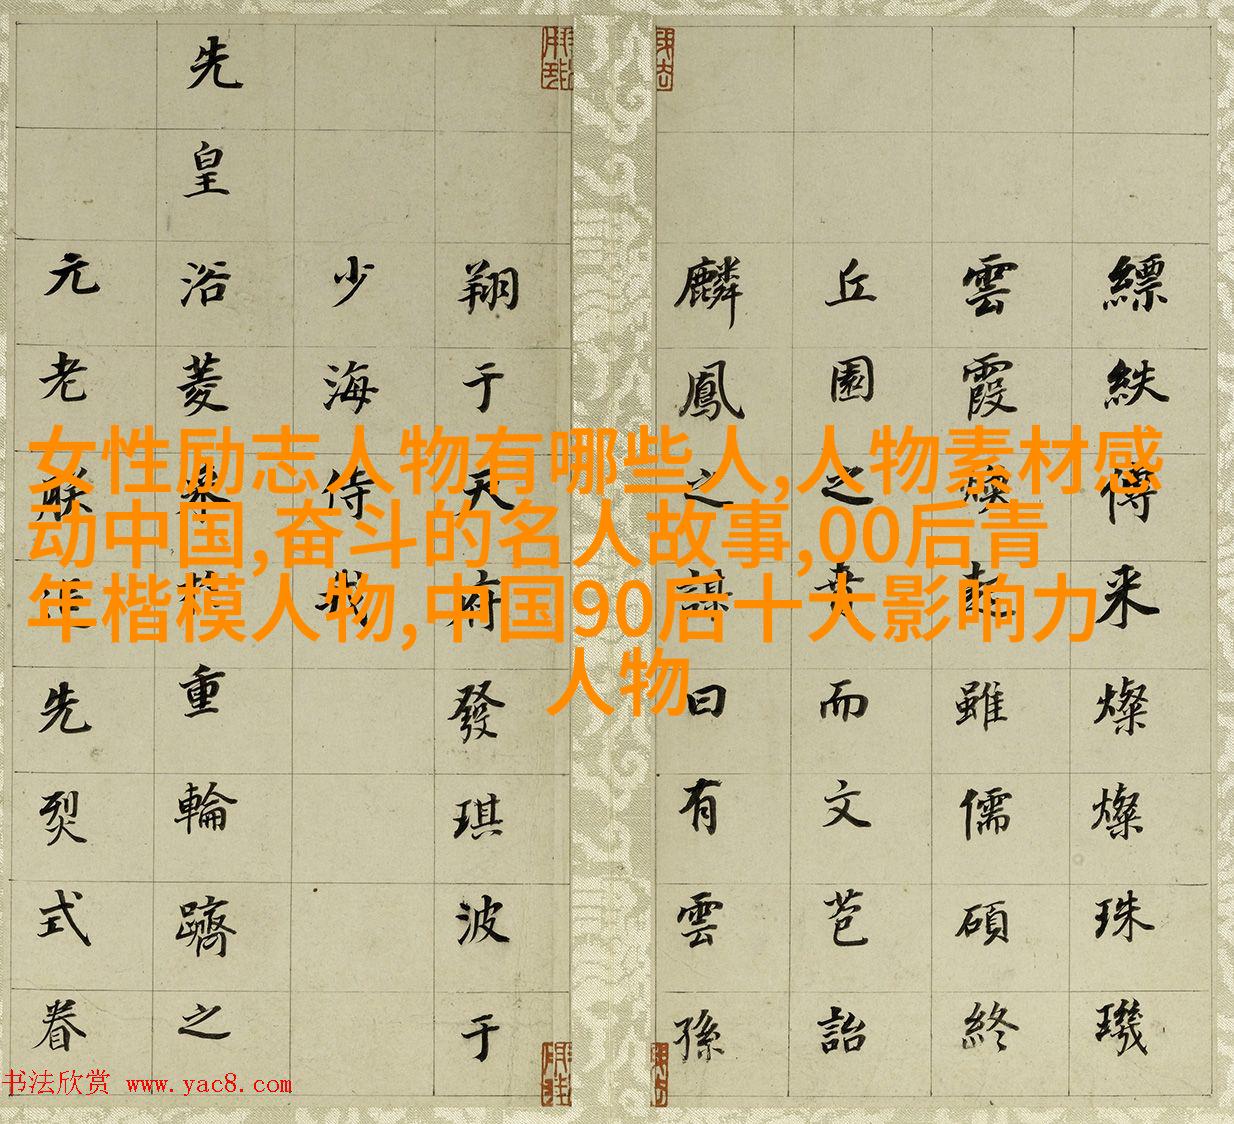 女性励志人物有哪些人,人物素材感
动中国,奋斗的名人故事,00后青
年楷模人物,中国90后十大影响力
人物
縹紩傳来燦燦珠璣
雲霞煥起雖儒碩終
丘園之賁而文芭詒
麟鳳之謀曰有雲孫
翔于天府發琪波于
少海侍
先皇浴菱重輪躋之
元老先烈式眷
书法欣赏 www.yac8.com